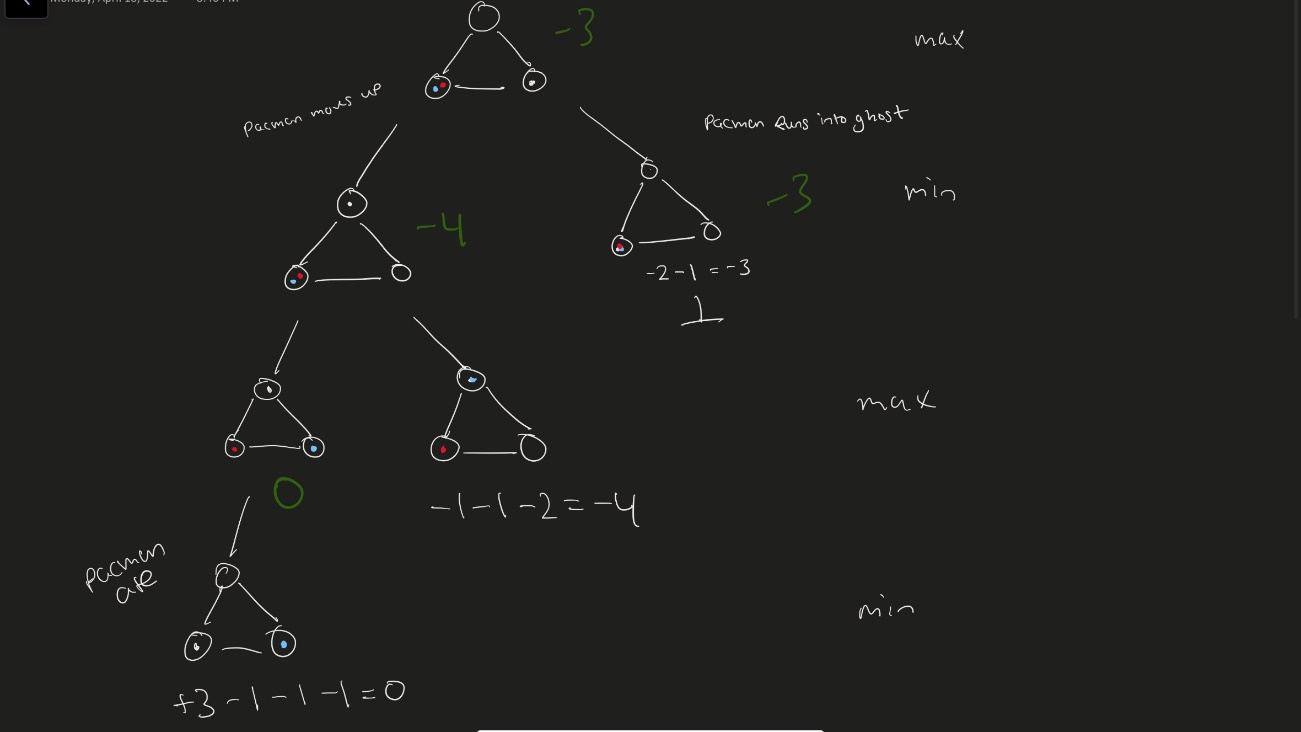 Monday, April 18, 2022
-3
max
pacman moves up
Pacman Runs into ghost
-4
-3
min
-2-1=-3
1
max
0
-1-1-2=-4
pacman
ate
min
+3-1-1-1=0